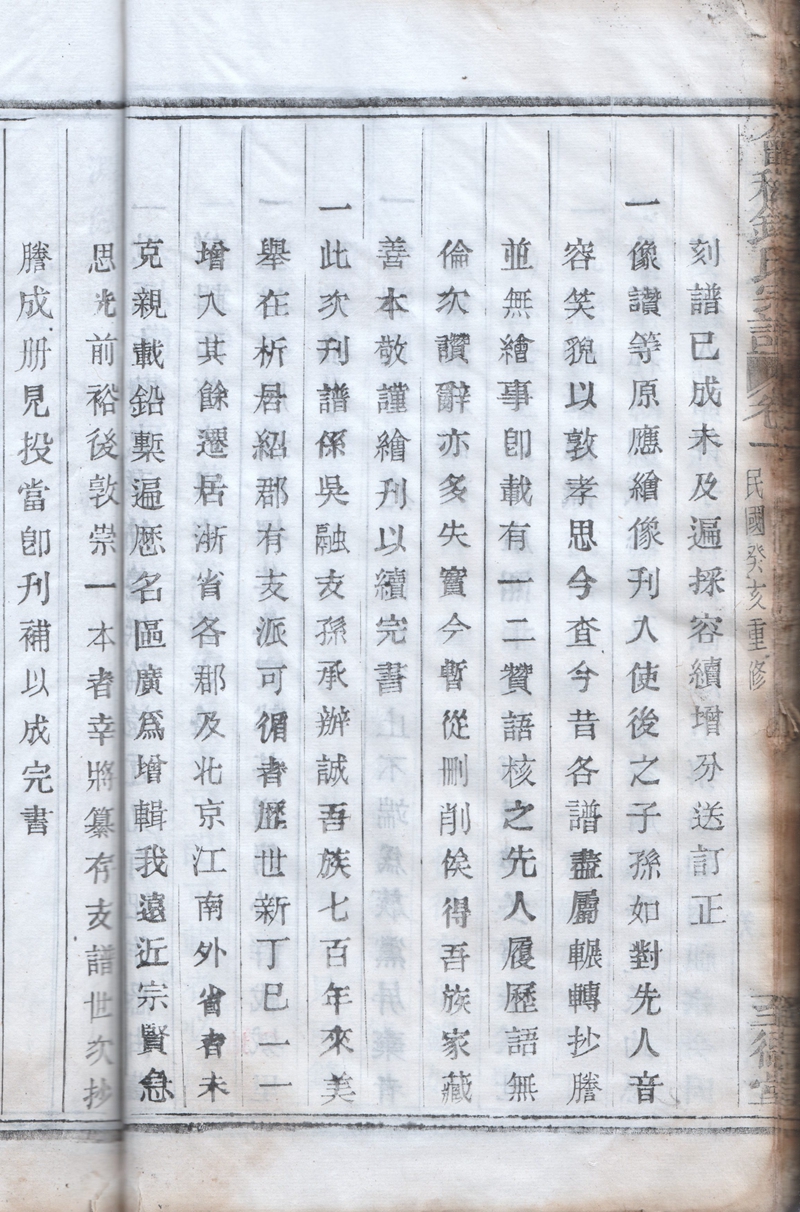 氏宗譜 卷一 民國癸亥重修
刻譜已成未及遍採容續增分送訂正
一像讚等原應繪像刊入使後之子孫如對先人音
容笑貌以敦孝思今查今昔各譜盡屬輾轉抄謄
並無繪事卽載有一二贊語核之先人履歷語無
倫次讚辭亦多失實今暫從刪削俟得吾族家藏
善本敬謹繪刊以續完書
一此次刋譜係吳融支孫承辦誠吾族七百年來美
舉在析居紹郡有支派可循者歷世新丁已一一
增入其餘遷居浙省各郡及北京江南外省者未
克親載鉛槧遍歷名區廣爲增輯我遠近宗賢急
思光前裕後敦崇一本者幸將纂存支譜世次抄
謄成册見投當卽刊補以成完書